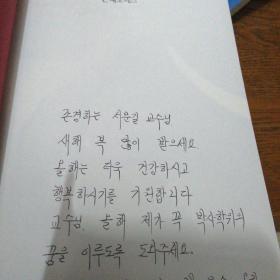 존경하는 서운길 교수님
새해 복 많이 받으세요.
올해는 더욱 건강하시고
행복하시기를 기원합니다
교수님. 올해 제가 꼭 박사학위의
꿈을 이루도록 도와주세요.